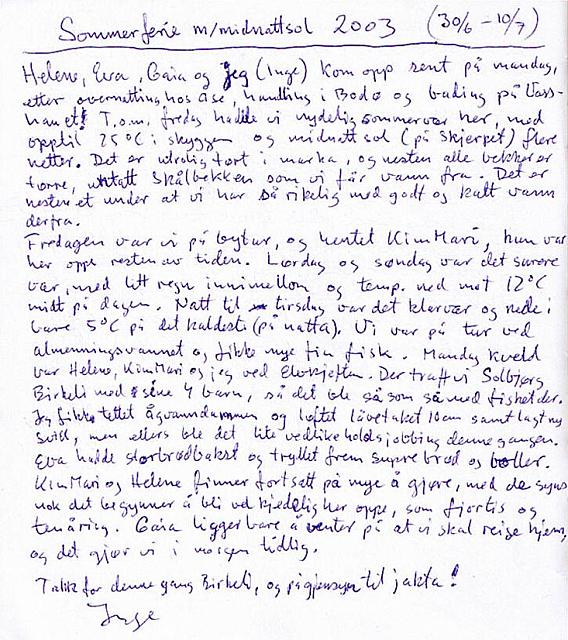 Sommerferie m/midnattsol 2003 (30/6 - 10/7)
Helene, Eva, Gaia og jeg (Inge) kom opp sent på mandag,
etter overnatting hos Åse, handling i Bodø og bading på Vass-
havet! T.o.m. fredag hadde vi nydelig sommervær her, med
opptil 25°C i skyggen og midnattsol (på skjerpet) flere
netter. Det er utrolig tørt i marka, og nesten alle bekker er
tørre, untatt Skålbekken som vi får vann fra. Det er
nesten et under at vi har så rikelig med godt og kaldt vann
derfra.
Fredagen var vi på bytur, og hentet Kim Mari, hun var
her oppe resten av tiden. Lørdag og søndag var det surere
vær, med litt regn innimellom og temp. ned mot 12°C
midt på dagen. Natt til tirsdag var det klarvær og nede i
bare 5°C på det kaldeste (på natta). Vi var på tur ved
almenningsvannet og fikk mye fin fisk. Mandag kveld
var Helene, Kim Mari og jeg ved Elvkjeften. Der traff vi Solbjørg
Birkeli med sine 4 barn, så det ble så som så med fisket der.
Jeg fikk tettet og løftet låvetaket 10 cm samt lagt ny
svill, men ellers ble det lite vedlikeholdsjobbing denne gangen.
Eva hadde storbrødbakst og tryllet frem supre brød og boller.
Kim Mari og Helene finner fortsatt på mye å gjøre, med de syns
nok det begynner å bli vel kjedelig her oppe, som fjortis og
tenåring. Gaia ligger bare å venter på at vi skal reise hjem,
og det gjør vi i morgen tidlig.
Takk for denne gang Birkeli, og på gjensyn til jakta!
Inge